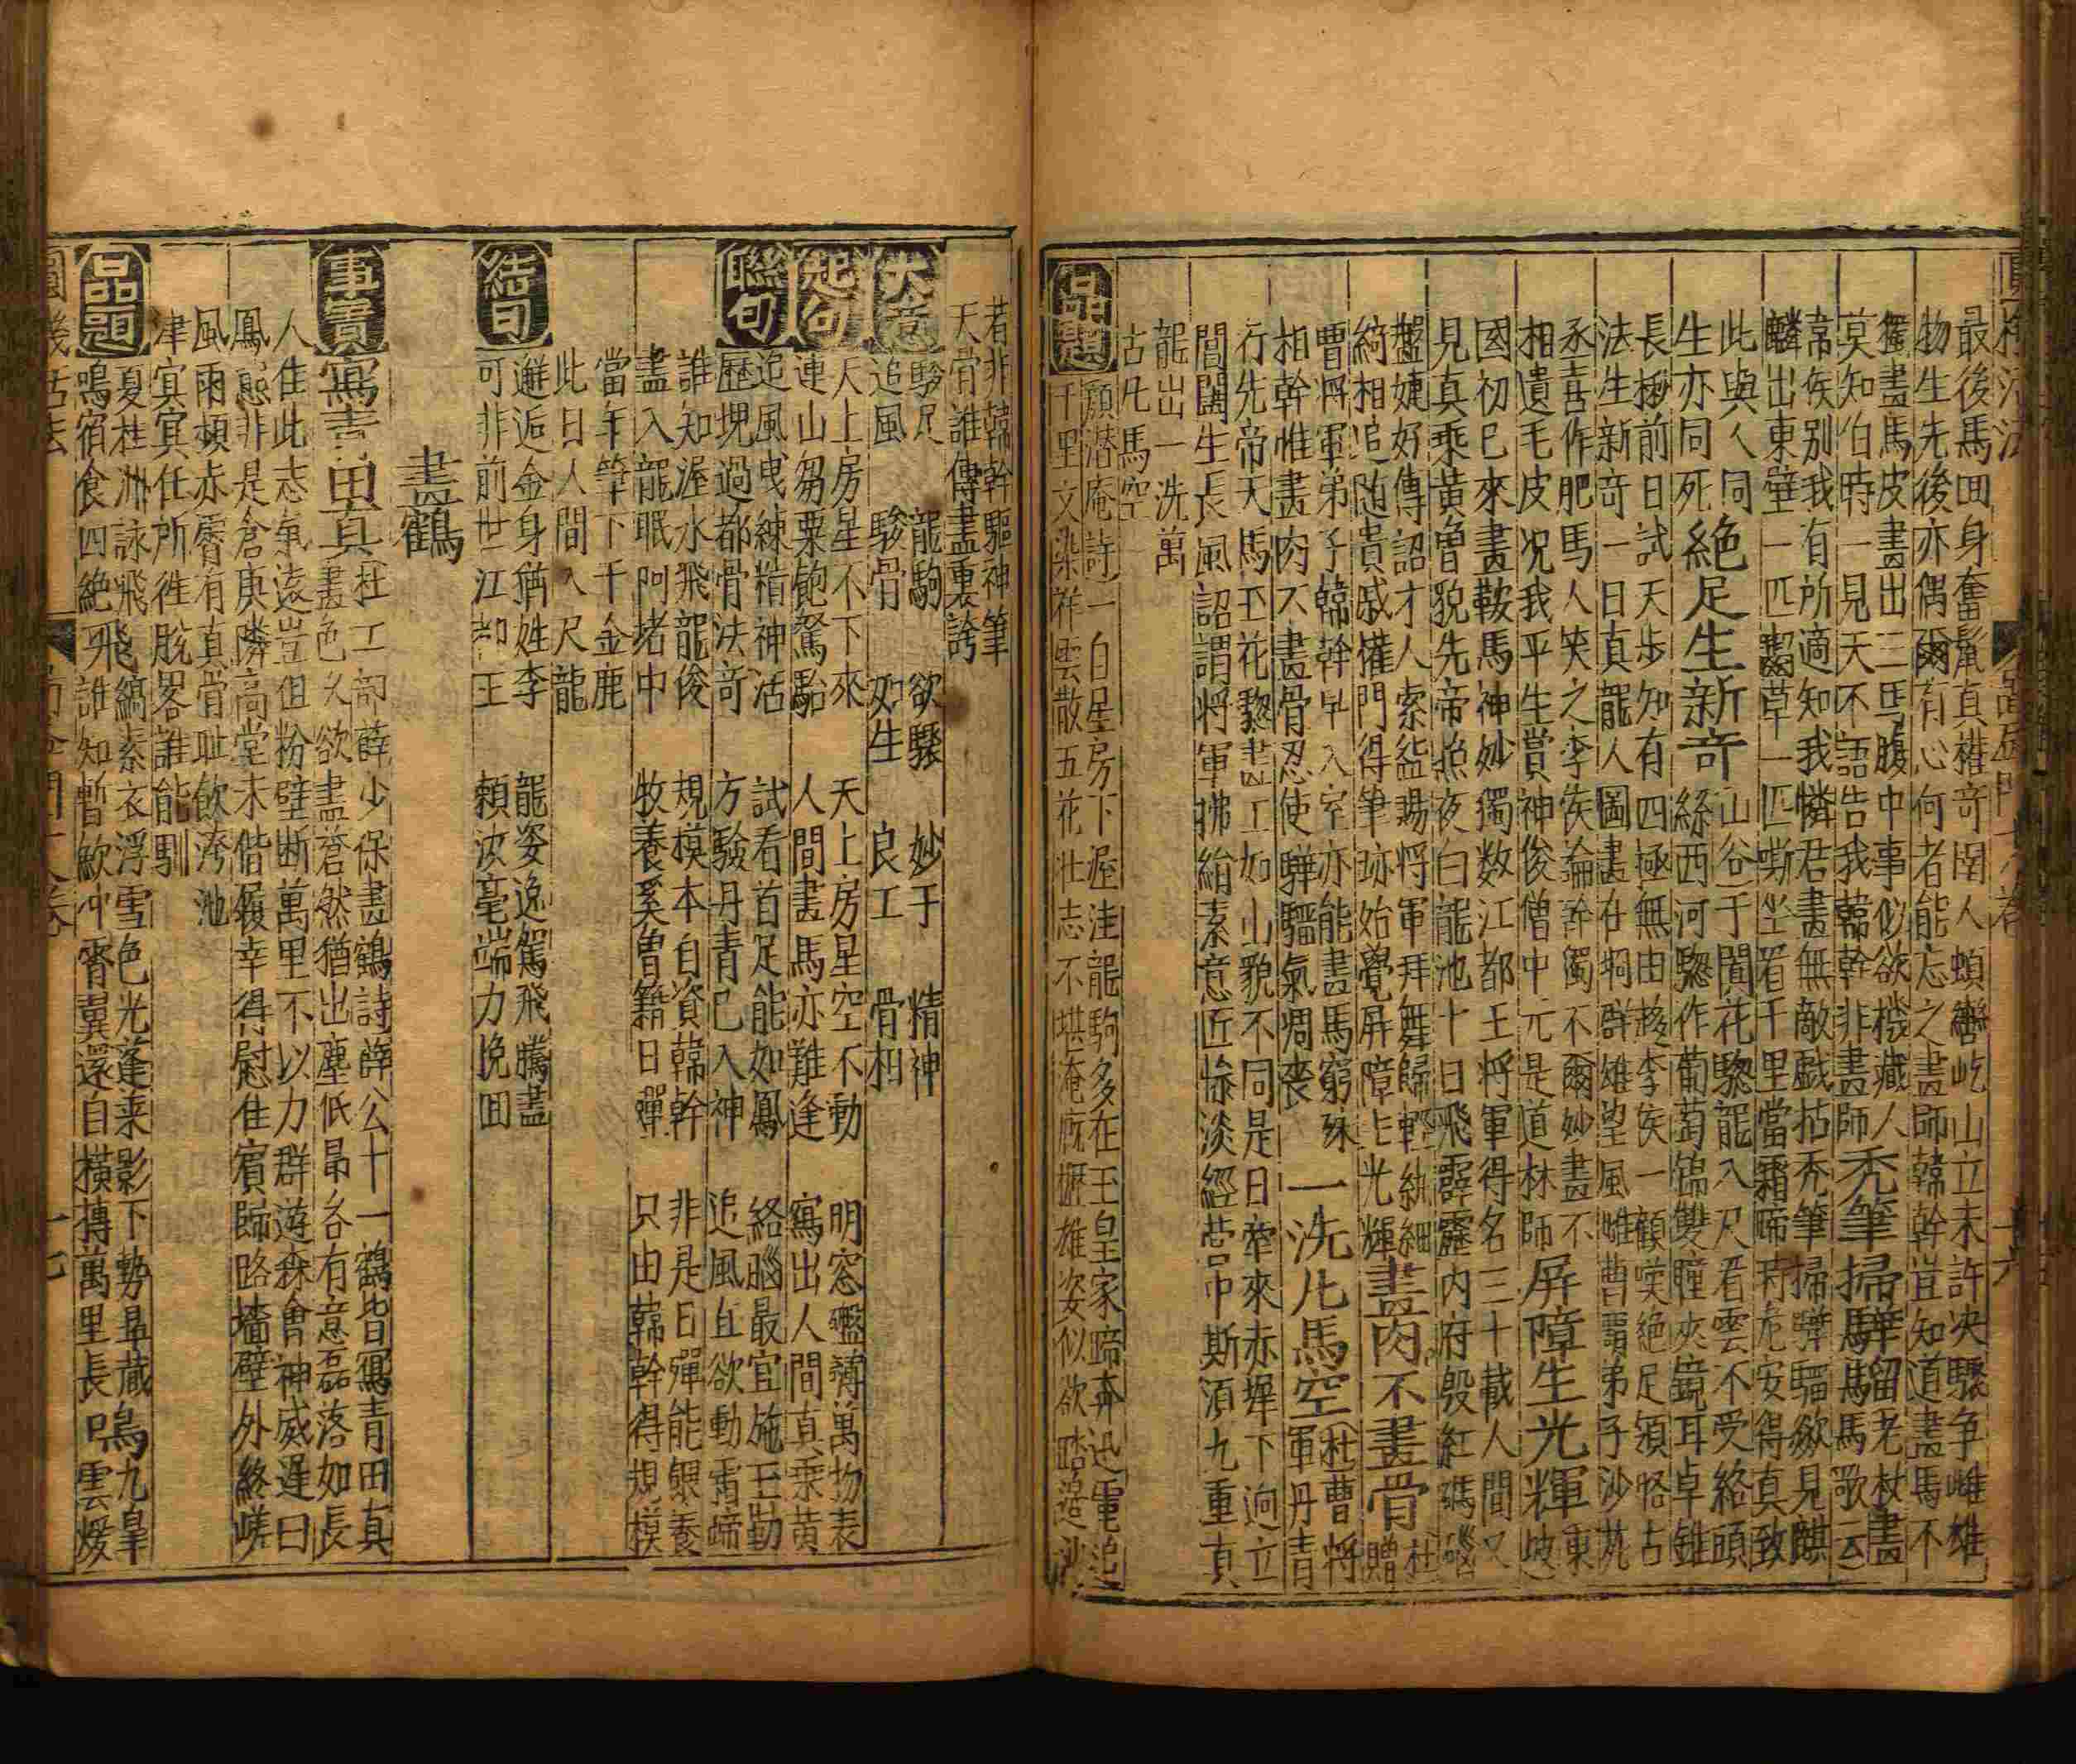 最後馬四身奮鬣真權奇圉人頓轡屹山立未許决驟争雌雄
物生先後亦偶爾有心何者能忘之畫師韓幹豈知道畫馬不
獨畫馬皮畫出三馬腹中事似欲機藏人
莫知伯時一見天不語告我韓幹非畫師
禿筆掃驊騮老杜畫馬歌云
常侯别我有所適知我憐君畫無敵戲拈禿筆掃驊騮欻見麒
麟出東壁一匹齕草一匹嘶坐看千里當霜蹄時危安得真致
此與人同
生亦同死
絶足生新奇
山谷于闐花驄龍入尺看雲不受絡頭
絲西河驄作葡萄錦雙瞳夾鏡耳卓錐
長楸前日試天步知有四極無由葠李侯一顧嘆絶足領略古
法生新奇一日真龍人圖畫在坰群雄望風雌曹霸弟子沙苑
丞喜作肥馬人笑之李侯論幹獨不爾妙畫不
相遺毛皮况我平生賞神俊僧中元是道林師
屏障生光輝
東坡
國初已來畫鞍馬神妙獨数江都王將軍得名三十載人間又
見真乘黄曾貌先帝照夜白龍池十日飛霹靂内府殷紅瑪瑙
盤婕妤傳詔才人索盌賜將軍拜舞歸輕紈細
綺相追随貴戚權門得筆跡始覺屏障生光輝
畫肉不畫骨
杜贈
曹將軍弟子韓幹早入室亦能畫馬窮殊
相幹惟畫肉不畫骨忍使驊騮氣凋丧
一洗凡馬空
杜曹將
軍丹青
行先帝天馬玉花驄畫工如山貌不同是日牽來赤墀下迥立
閶闔生長風詔謂將軍拂絹素意匠惨淡經营中斯湏九重真
龍出一洗萬
古凡馬空
品題
顔潜庵詩
一白星房下渥洼龍駒多在玉皇家蹄奔迅電追
千里文染祥雲散五花壮志不堪淹厩櫪雄姿似欲踏邊沙
若非韓幹驅神筆
天骨誰傳畫裏誇
大意
駿足 龍駒 欲驟 妙于 精神
追風 駿骨 如生 良工 骨相
起句
天上房星不下來 天上房星空不動 明窓盤礴萬物表
連山芻粟飽駑駘 人間畫馬亦難逢 寫出人間真乘黄
聯句
追風曳練精神活 試看首足能如鳳 絡腦最宜施玉勒
歷塊過都骨法奇 方驗丹青已入神 追風且欲動霜蹄
誰知渥水飛龍俊 規模本自資韓幹 非是日殫能䬸養
畫入龍眠阿堵中 牧養奚曾籍日殫 只由韓幹得規模
當年筆下千金鹿
此日人間入尺龍
結句
邂逅金身猶姓李 龍姿逸駕飛騰盡
可非前世江都王 頼汝毫端力挽回
畫鶴
事實
寫青田真
杜工部薛少保畫鶴詩薛公十一鶴皆寫青田真
畫色久欲盡蒼然猶出塵低昂各有意磊落如長
人佳此志氣遠豈但粉壁断萬里不以力群遊森會神威遲曰
鳳態非是倉庚隣高堂未偕覆幸得慰佳賓歸路墻壁外終嗟
風雨頻赤霄有真骨耻飲洿池
津㝠㝠任所徃脱畧誰能馴
品題
夏桂洲詠飛飛縞素衣浮雪色光蓬莱影下勢虽蔵鳴九皐
鳴宿食四絶飛誰知暫歛冲霄翼還自横摶萬里長唳雲煖